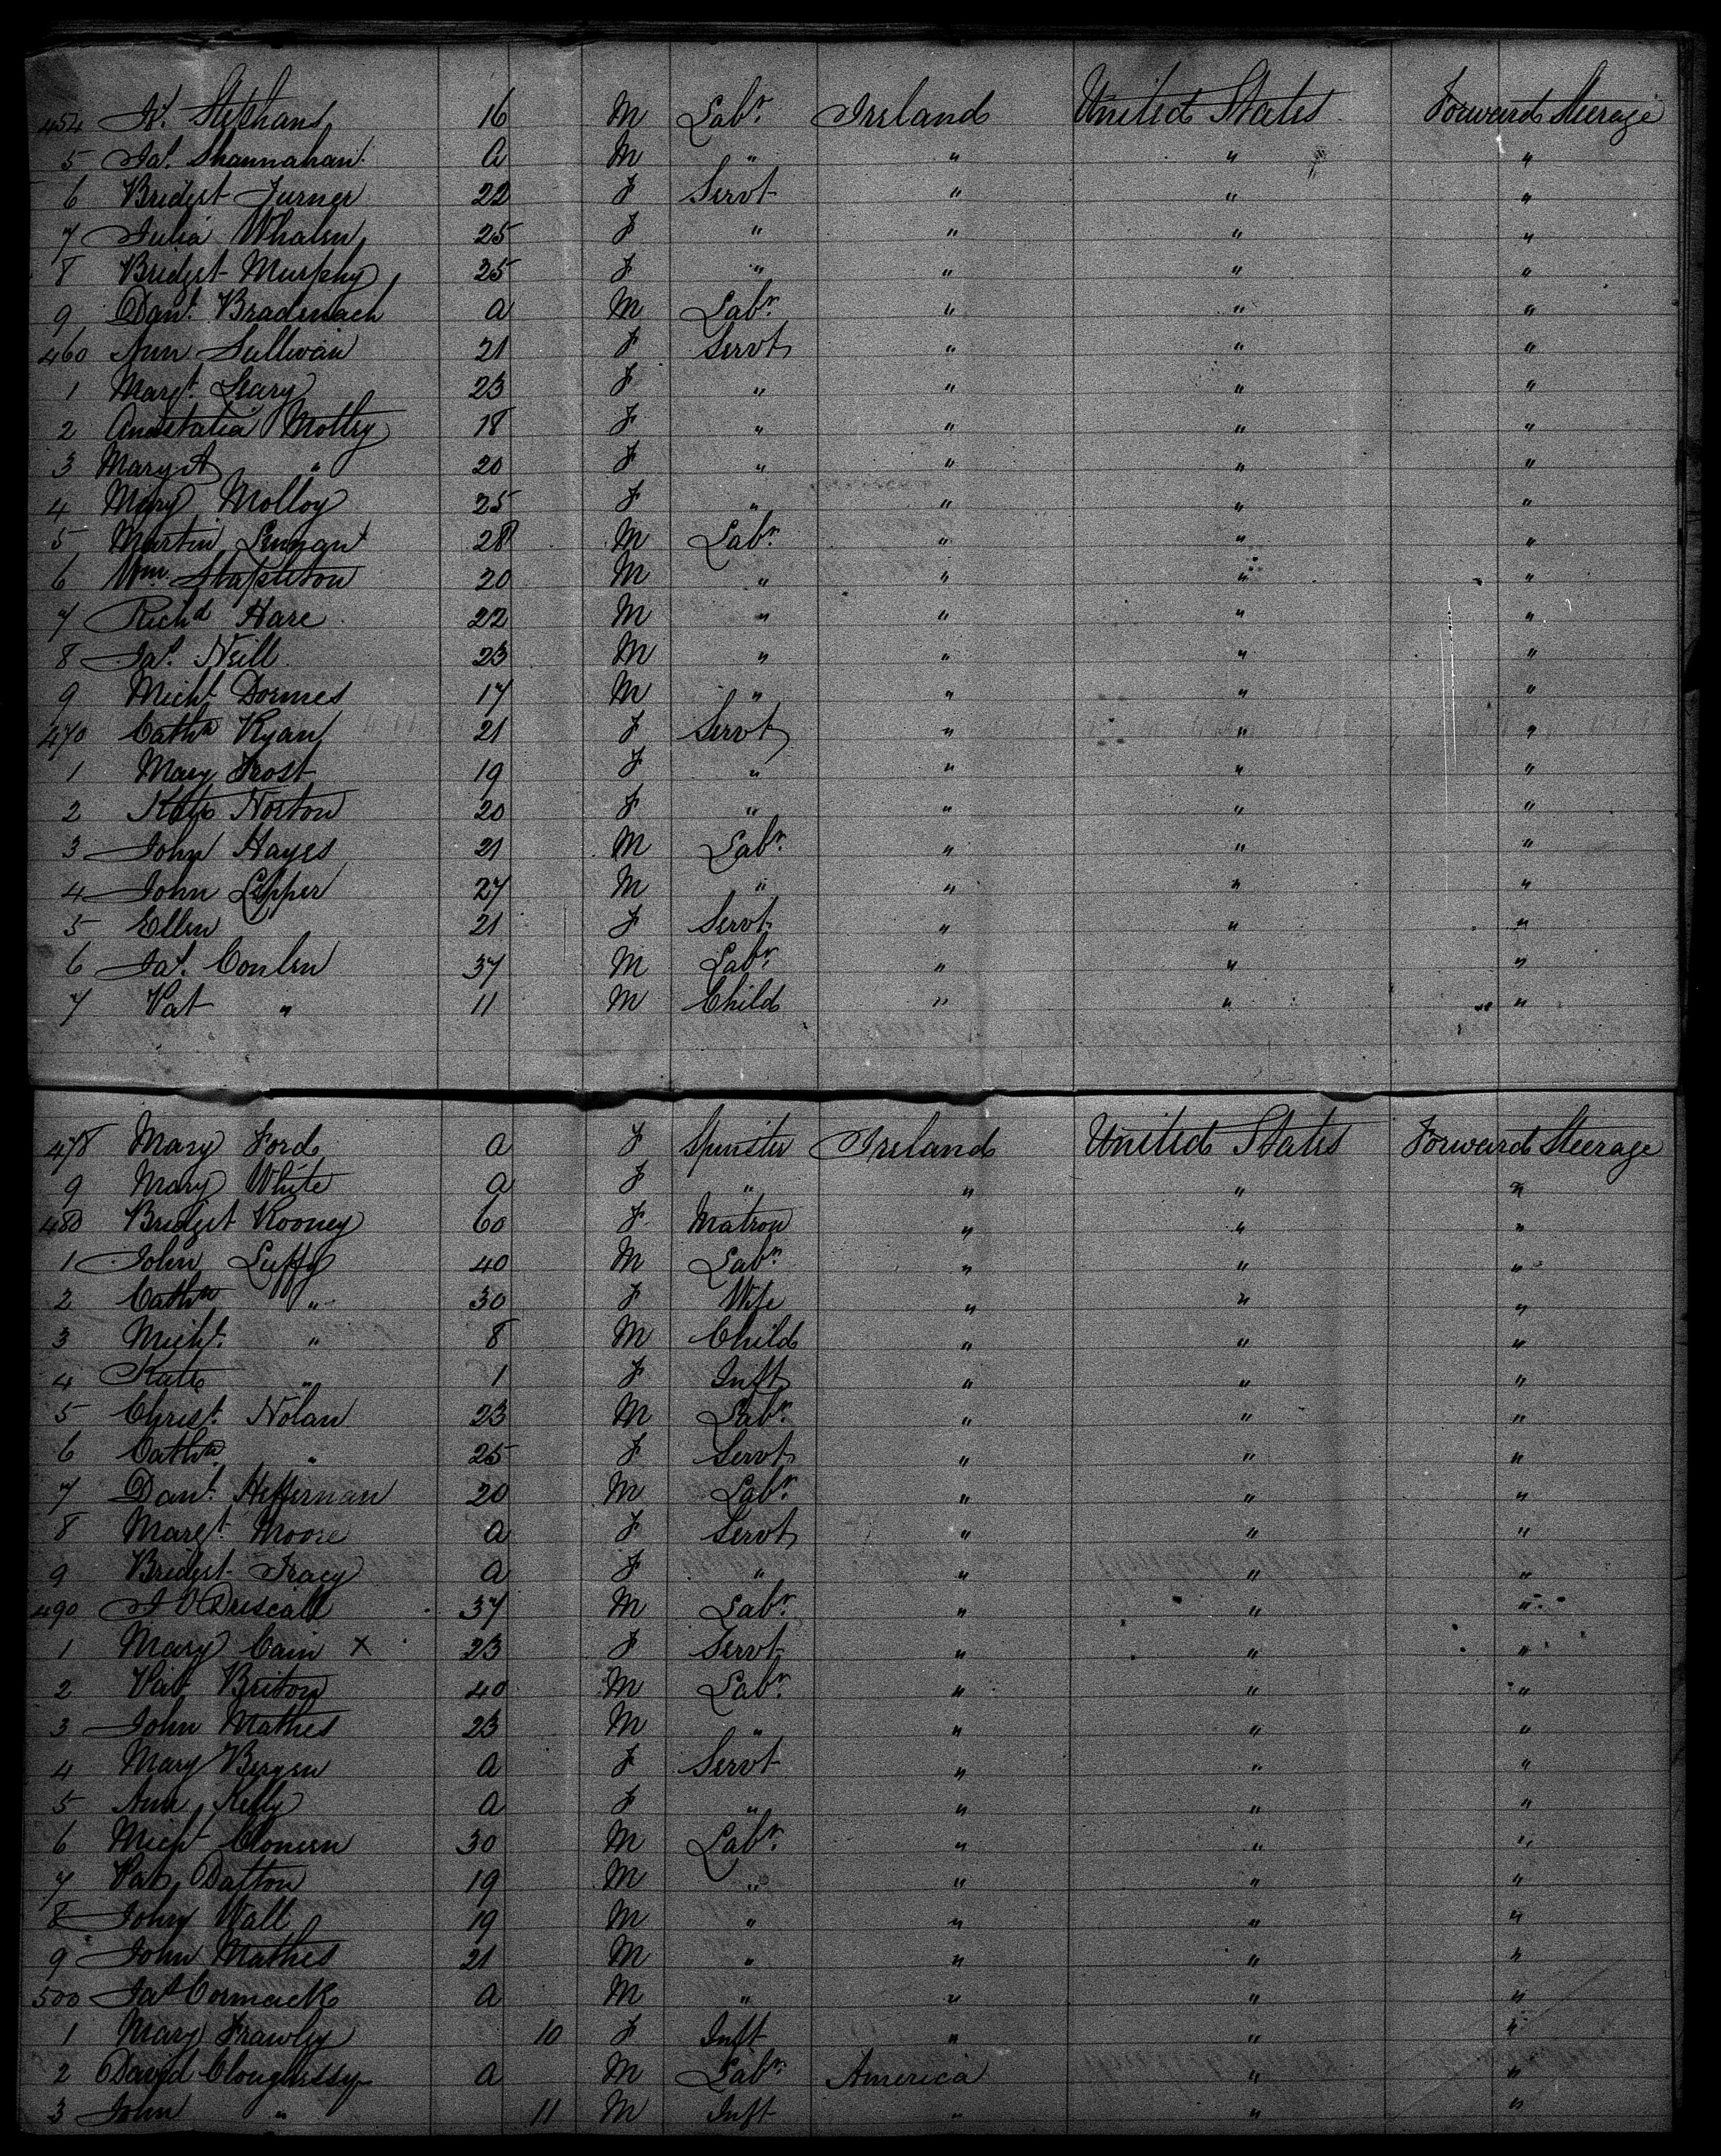 454 Jos. Stephans 16 M Labr. Ireland United States Forward Steerage
5 Jas. Shannahan a M " " " "
6 Bridget Turner 22 F Servt " " "
7 Julia Whalen 25 F " " " "
8 Bridget Murphy 35 F " " " "
9 Danl. a M Labr. " " "
460 Ann Sullivan 21 F Servt " " "
1 Margt. Leary 23 F " " " "
2 Anastatia Mottry 18 F " " " "
3 Mary A " 20 F " " " "
4 Mary Molloy 25 F " " " "
5 Martin 28 M Labr. " " "
6 Wm. Stapleton 20 M " " " "
7 Richd Hare 22 M " " " "
8 Jas. Neill 23 M " " " "
9 Michl. Dormes 17 M " " " "
470 Cathn Ryan 21 F Servt " " "
1 Mary Frost 19 F " " " "
2 Kate Norton 20 F " " " "
3 John Hayes 21 M Labr. " " "
4 John Lepper 27 M " " " "
5 Ellen 21 F Servt " " "
6 Jas. Conlen 37 M Labr. " " "
7 Pat " 11 M Child " " "
478 Mary Ford a F Spinster Ireland United States Forward Steerage
9 Mary White a F " " " "
480 Bridget Rooney 60 F Matron " " "
1 John Luffy 40 M Labr. " " "
2 Cathn " 30 F Wife " " "
3 Michl. " 8 M Child " " "
4 Kate " 1 F Inft " " "
5 Christ. Nolan 23 M Labr. " " "
6 Cathn " 25 F Servt " " "
7 Danl. Heffernan 20 M Labr. " " "
8 Margt. Moore a F Servt " " "
9 Bridget Tracy a F " " " "
490 J O'Driscall 37 M Labr. " " "
1 Mary Cain X 23 F Servt " " "
2 Pat Briton 40 M Labr. " " "
3 John Mathes 23 M " " " "
4 Mary Bergen a F Servt " " "
5 Ann Kelly a F " " " "
6 Michl 30 M Labr. " " "
7 Pat Dalton 19 M " " " "
8 John Wall 19 M " " " "
9 John Mathes 21 M " " " "
500 Jas Cormack a M " " " "
1 Mary Frawley 10 F Inft " " "
2 David Cloughessy a M Labr. America " "
3 John " 11 M Inft " " "